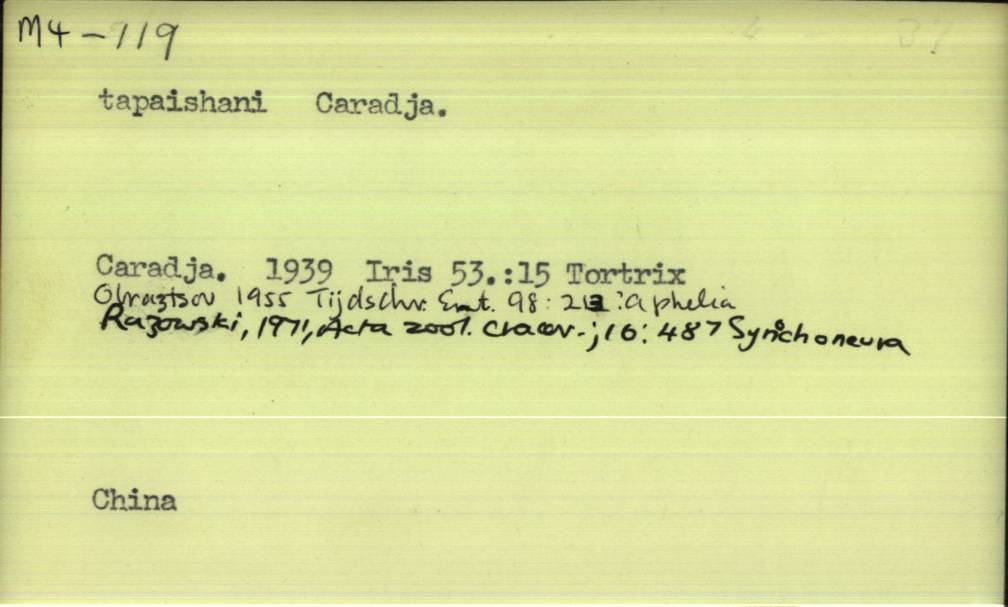 M4-719
tapaishani Caradja.
Caradja. 1939 Iris 53.:15 Tortrix
Obraztsov 1955 Tijdschr. Ent. 98: :Aphelia
Razowski, 1971, Acta zool. cracov.; 16: 487 Synochoneura
China